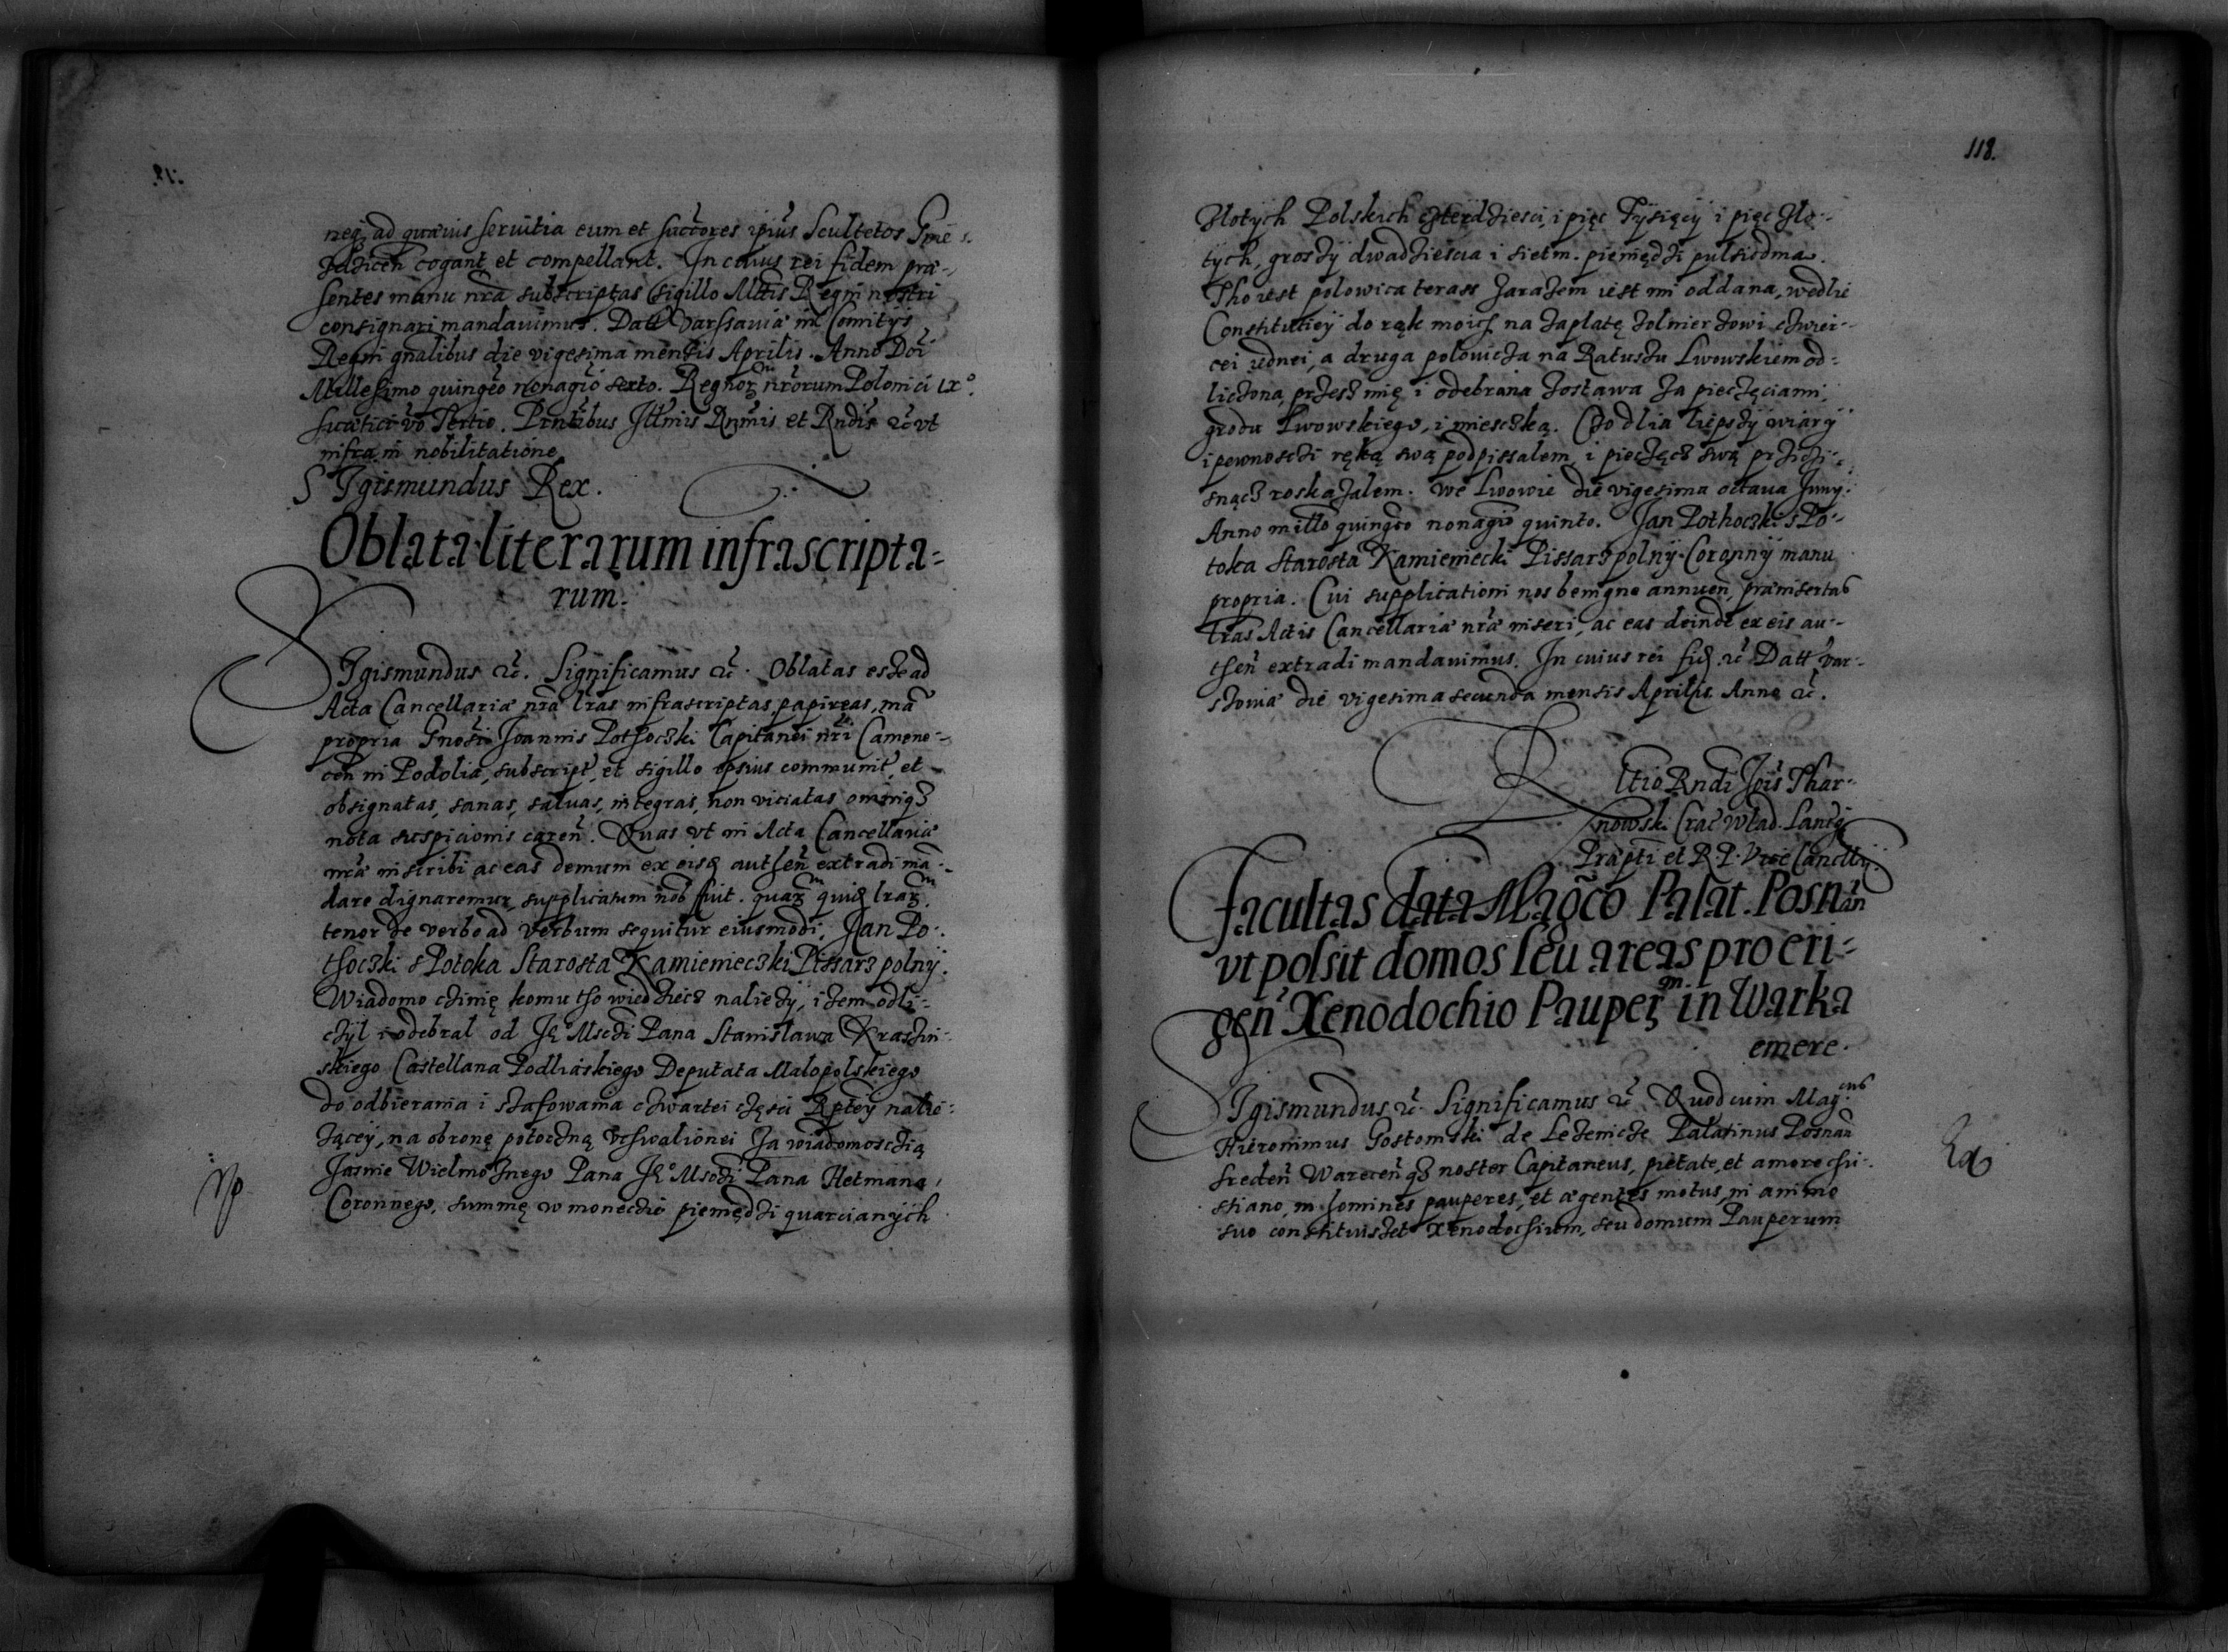 neqȝ ad quæuis seruitia eum et succores ipius Scultetos
cogant et compellant. In cuius rei fidem præ-
sentes manu nra subscriptas sigillo Mttis Regni nostri
consignari mandauimus. Datt Varssauiæ in Comitijs
Regni gnalibus die vigesima mensis Aprilis. Anno Dni
Millesimo quingeo nonagio sexto. Regnoꝝ nrorum Poloniæ ix°
Suetici vo Tertio. Pntibus Illmis Rnmis et Rndis ꝛc vt
infra in nobilitatione
SIgismundus Rex.
Oblata literarum infrascripta-
rum.
SIgismundus ꝛc. Significamus ꝛc. Oblatas esse ad
Acta Cancellariæ nræ lras infrascriptas papireas, mã
propria Gnosi Joannis Pothocȝki Capitanei nri Cameneco-
cen in Podolia, subscript, et sigillo ipsius communit, et
obsignatas, sanas, saluas, integras, non viciatas omniqȝ
nota suspicionis caren. Quas vt in Acta Cancellariæ
nræ inscribi ac eas demum ex eisȩ authen extradi mã-
dare dignaremur, supplicatum nob fuit. quaꝝ quiȩ lraꝝ
tenor de verbo ad verbum sequitur eiusmodi, Jan Po-
thocȝki s Potoka Starosta Kamieniecȝki Pissarȝ polnÿ.
Wiadomo czinię komu tho wiedziecȝ należÿ, iżem odli-
czÿl i odebral od Jȩ° Msczi Pana Stanislawa Kraszin-
skiego Castellana Podliaskiego Deputata Malopolskiego
do odbierania i szafowania czwartei części Rptey nalie-
zącey, na obronę potoczną vchwalionei za wiadomosczią
Jasnie Wielmożnego Pana Jȩ° Msczi Pana Hetmana
Coronnego, summę w monecżie pieniędzi quarcianÿch
118.
Zlotÿch Polskich czterdziesci, i pięc Tÿsięcÿ i pięc zlo-
tÿch, groszÿ dwadziescia i siem. pieniędzi pulsiodma.
Tho iest polowica terass zarazem iest mi oddana, wedlie
Constituciÿ do rąk moich na zaplatę zolnierzowi czwier-
cei iednei, a druga polouicza na Ratuszu Lwowskiem od-
liczona, przesȝ mię i odebrana zostawa za pieczęciami,
grodu Lwowskiego, i miescȝką. Czo dlia liepszÿ wiarÿ
i pewnosczi ręką swą podpissalem, i pieczęcȝ swą prziczi-
snącȝ roskazalem. We Lwowie die vigesima octaua Junij.
Anno millo quingeo nonagio quinto. Jan Pothocȝki s Po-
toka Starosta Kamieniecki Pissarȝ polnÿ Coronnÿ manu
propria. Cui supplicationi nos benigne annuen, præinsertas
lras Actis Cancellariæ nræ inseri, ac eas deinde ex eis au-
then extradi mandauimus. In cuius rei fiȩ ꝛc Datt Var-
szouiæ die vigesima secunda mensis Aprilis Anno ꝛc.
Rltio Rndi Jois Thar-
nowski Crac Wlad. Lancȩ
Præpti et R. P. Vice Cancllÿ
Facultas data Magco Palat. Posnan
vt possit domos seu areas pro eri-
gen Xenodochio Pauperꝝ in Warka
emere.
SIgismundus ꝛc. Significamus ꝛc Quod cum Mag.cus
Hieronimus Gostomski de Lezenicze Palatinus Posnan
Sreden Warecen qȝ noster Capitaneus, pietate, et amore chri-
stiano, in homines pauperes, et ægentes motus, in animo
suo constituisset Xenodochium, seu domum Pauperum